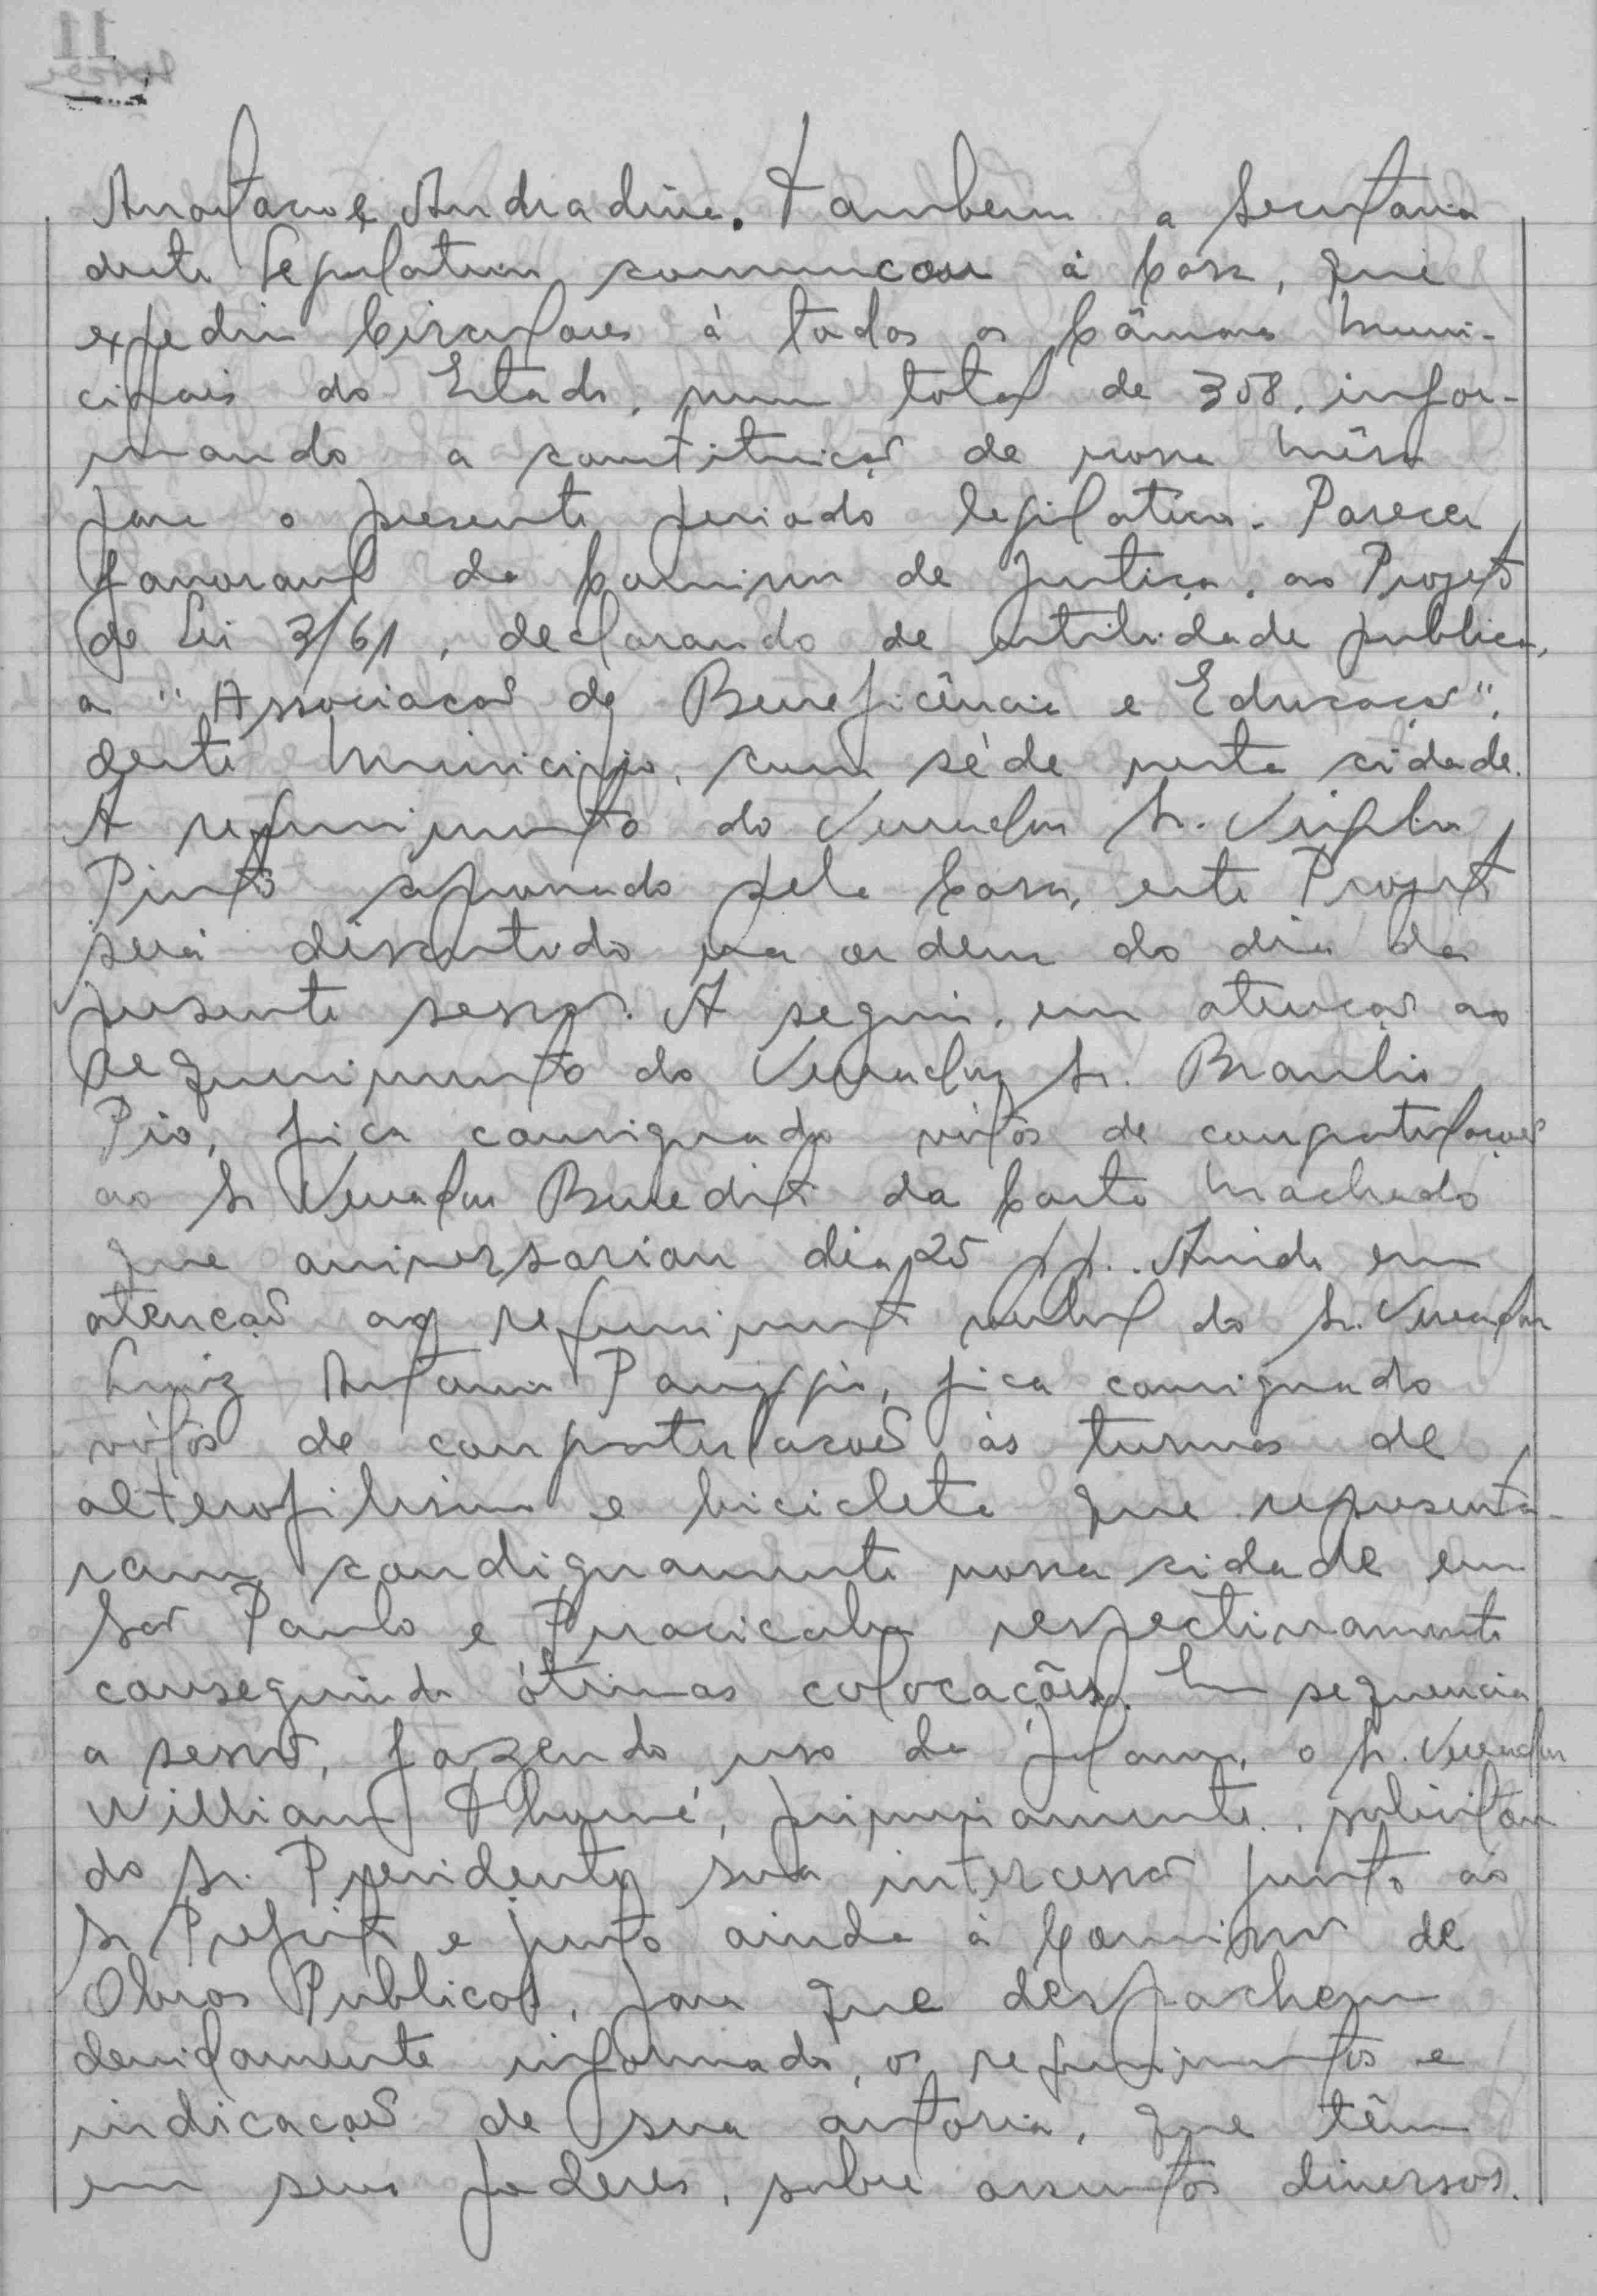 Anastacio e Andradina. Tambem a Secretaria
deste Legislativo comunicou à Casa, que
expediu Circulares à todas as Câmaras Muni-
cipais do Estado, num total de 358, infor-
mando a constituição de nossa Mêsa
para o presente periodo legislativo. Parecer
favoravel da Comissão de Justiça, ao Projeto
de Lei 3/61, declarando de utilidade publica,
a "Associação de Beneficência e Educação",
deste Municipio, com séde nesta cidade.
A requerimento do Vereador Sr. Virgilio
Pinto aprovado pela Casa, este Projeto
será discutido na ordem do dia da
presente sessão. A seguir, em atenção ao
requerimento do Vereador Sr. Braulio
Pio, fica consignado vótos de congratulações
ao Sr Vereador Benedito da Costa Machado
que aniversariou dia 25 pp. Ainda em
atenção ao requerimento verbal do Sr. Vereador
Luiz Antonio, fica consignado
vótos de congratulações às turmas de
alterofilismo e bicicleta que representa-
ram condignamente nossa cidade em
São Paulo e Piracicaba respectivamente
conseguindo ótimas colocações. Em sequencia
a sessão, fazendo uso da palavra, o Sr. Vereador
William Thomé, primeiramente, solicitou
do Sr. Presidente sua intercessão junto ao
Sr Prefeito e junto ainda à Comissão de
Obras Publicas, para que despachem
devidamente informado, os requerimentos e
indicações de sua autoria, que têm
em seus poderes, sobre assuntos diversos.